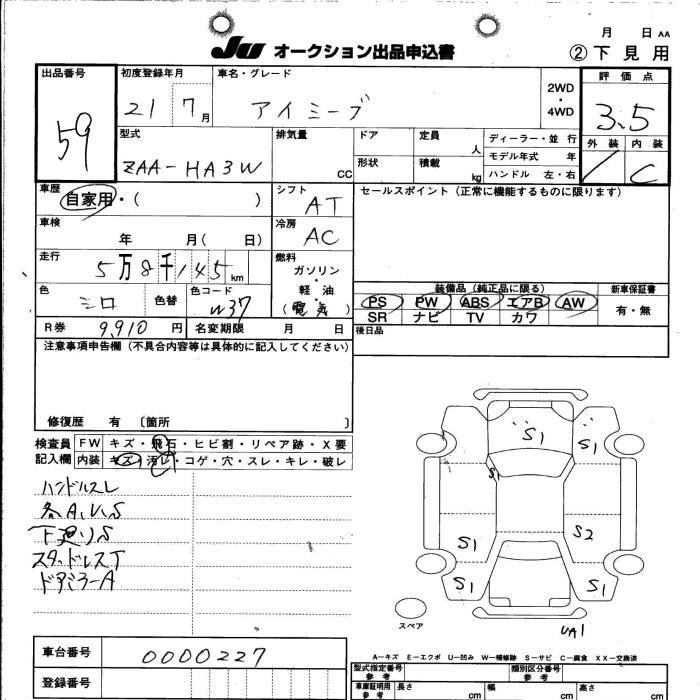 月 日 AA
JU オークション出品申込書 ②下見用
出品番号 59
初度登録年月 21 7月
車名・グレード アイミーブ
2WD・4WD
評価点 3.5
外装 内装 C
型式 ZAA-HA3W
排気量 CC
ドア 定員 人
形状 積載 kg
ディーラー・並行
モデル年式 年
ハンドル 左・右
車歴 自家用・( )
シフト AT
セールスポイント(正常に機能するものに限ります)
車検 年 月( 日)
冷房 AC
走行 5万8千145km
燃料 ガソリン・軽油(電気)
色 シロ 色替 色コード W37
装備品(純正品に限る) 新車保証書
PS PW ABS エアB AW 有・無
SR ナビ TV カワ
R券 9,910円 名変期限 月 日
後日品
注意事項申告欄(不具合内容等は具体的に記入してください)
修復歴 有 〔箇所 〕
検査員 FW キズ・飛石・ヒビ割・リペア跡・X要
記入欄 内装 キズ・汚レ・コゲ・穴・スレ・キレ・破レ
ハンドルスレ
各A,U,S
下廻りS
スタッドレスT
ドアミラーA
S1 S1
S1
S1 S2
S1 S1
スペア
UA1
A-キズ E-エクボ U-凹み W-補修跡 S-サビ C-腐食 XX-交換済
車台番号 0000227
登録番号
型式指定番号 参考 類別区分番号 参考
車庫証明用 参考 長さ cm 幅 cm 高さ cm